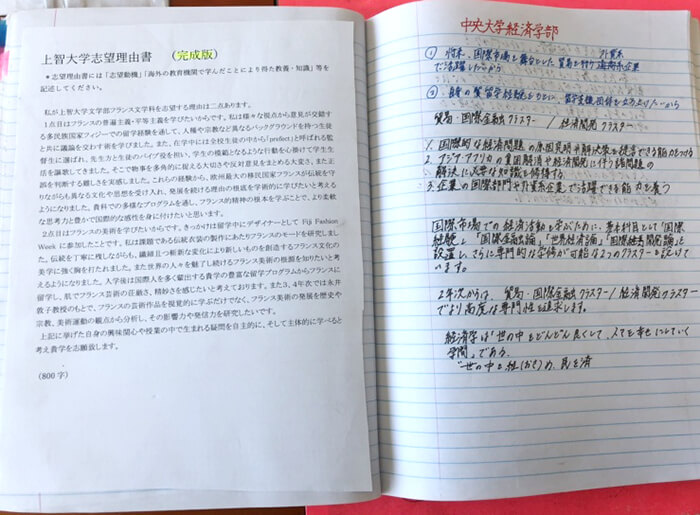 上智大学志望理由書 (完成版)
● 志望理由書には「志望動機」「海外の教育機関で学んだことにより得た教養・知識」等を
記述してください。
私が上智大学文学部フランス文学科を志望する理由は二点あります。
1点目はフランスの普遍主義・平等主義を学びたいからです。私は様々な視点から意見が交錯す
る多民族国家フィジーでの留学経験を通して、人種や宗教など異なるバックグラウンドを持つ生徒
と共に議論を交わす術を学びました。また、在学中には全校生徒の中から「prefect」と呼ばれる監
督生に選ばれ、先生方と生徒のパイプ役を担い、学生の模範となるような行動を心掛けて学生生
活を謳歌してきました。そこで物事を多角的に捉える大切さや反対意見をまとめる大変さ、また正
誤を判断する難しさを実感しました。これらの経験から、欧州最大の移民国家フランスが伝統を守
りながらも異なる文化や思想を受け入れ、発展を続ける理由の根底を学術的に学びたいと考える
ようになりました。貴科での多様なプログラムを通し、フランス的精神の根本を学ぶことで、より柔軟
な思考力と豊かで国際的な感性を身に付けたいと思います。
2点目はフランスの美術を学びたいからです。きっかけは留学中にデザイナーとして Fiji Fashion
Week に参加したことです。私は課題である伝統衣装の製作にあたりフランスのモードを研究しまし
た。伝統を丁寧に残しながらも、繊細且つ斬新な変化により新しいものを創造するフランス文化の
美学に強く胸を打たれました。また世界の人々を魅了し続けるフランス美術の根源を知りたいと考
えるようになりました。入学後は国際人を多く輩出する貴学の豊富な留学プログラムからフランスに
留学し、肌でフランス芸術の荘厳さ、精妙さを感じたいと考えております。また3、4年次では永井
敦子教授のもとで、フランスの芸術作品を視覚的に学ぶだけでなく、フランス美術の発展を歴史や
宗教、美術運動の観点から分析し、その影響力や発信力を研究したいです。
上記に挙げた自身の興味関心や授業の中で生まれる疑問を自主的に、そして主体的に学べると
考え貴学を志願致します。
(800字)
中央大学経済学部
① 将来、国際市場を舞台とした貿易を行う
外資系
企業
で活躍したいから
② 自身の
留学経験をもとに、留学支援団体を立ち上げたいから
貿易・国際金融クラスター / 経済開発クラスター
1. 国際的な経済問題の原因究明や解決策を提言できる能力をつける
2. アジア・アフリカの貧困解消や経済開発に伴う諸問題の
解決に必要な知識を修得する
3. 企業の国際部門や外資系企業で活躍できる能力を養う
国際市場での経済活動を学ぶために、基本科目として「国際
経験」「国際金融論」「世界経済論」「国際経済開発論」を
設置し、さらに専門的な学修が可能な2つのクラスターを設けて
います。
2年次からは、貿易・国際金融クラスター / 経済開発のクラスター
でより高度な専門性を追求します。
経済学は「世の中をどんどん良くして、人々を幸せにしていく
学問」である。
"世の中を経(おさ)め、民を済